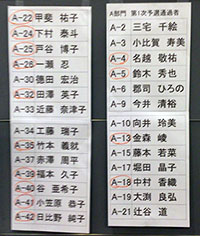 A-22 甲斐 祐子
A-24 下村 泰斗
A-25 戸谷 博子
A-26 一瀬 忍
A-30 徳田 宏治
A-32 田澤 英子
A-33 近藤 奈津子
A-34 工藤 瑞子
A-35 竹本 義就
A-37 赤澤 周平
A-39 福本 久子
A-40 谷 亜希子
A-41 小笠原 恭子
A-42 日比野 純子
A部門 第1次予選通過者
A-2 三宅 千絵
A-3 小比賀 寿美
A-4 名越 敬祐
A-5 鈴木 秀也
A-6 郡司 ひろの
A-9 今井 清裕
A-10 向井 玲美
A-13 金森 崚
A-15 藤本 若菜
A-17 堀田 晶子
A-18 中村 香織
A-19 大渕 良弘
A-21 辻谷 道